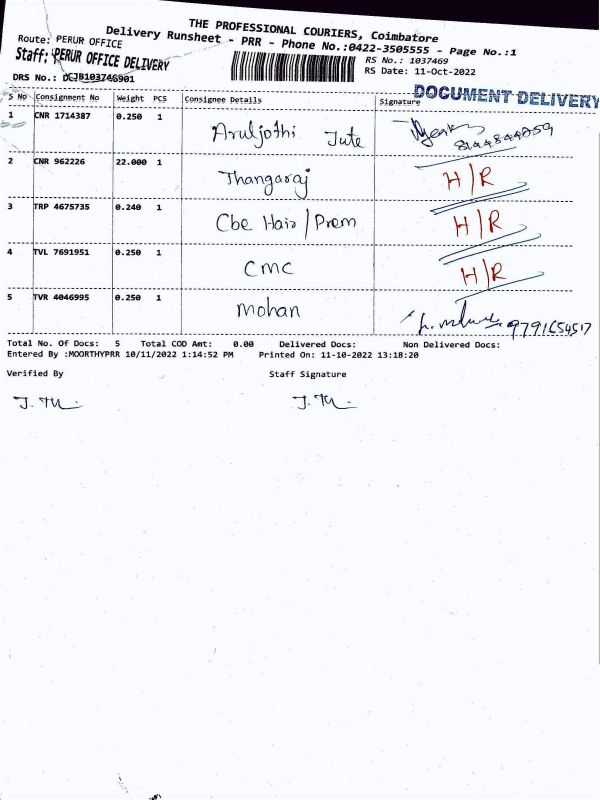 THE PROFESSIONAL COURIERS, Coimbatore
Delivery Runsheet - PRR - Phone No.:0422-3505555 - Page No.:1
Route: PERUR OFFICE
RS No.: 1037469
Staff: PERUR OFFICE DELIVERY
RS Date: 11-Oct-2022
DRS No.: DCJB103746901
DOCUMENT DELIVERY
S No Consignment No Weight PCS Consignee Details Signature
1 CNR 1714387 0.250 1 Aruljothi Jute
8144844059
2 CNR 962226 22.000 1 Thangaraj H/R
3 TRP 4675735 0.240 1 Cbe Hair/Prem H/R
4 TVL 7691951 0.250 1 CMC H/R
5 TVR 4046995 0.250 1 Mohan
9791654517
Total No. Of Docs: 5 Total COD Amt: 0.00 Delivered Docs: Non Delivered Docs:
Entered By :MOORTHYPRR 10/11/2022 1:14:52 PM Printed On: 11-10-2022 13:18:20
Verified By Staff Signature